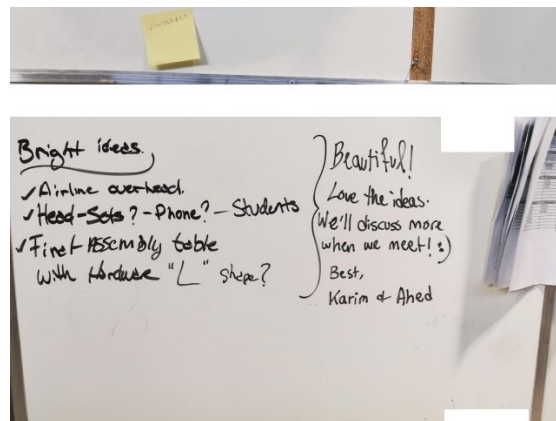 Bright ideas.
✓Airline overhead.
✓Head-Sets?-Phone? - Students
✓First Assembly table
with Hardware "L" shape?
Beautiful!
Love the ideas.
We'll discuss more
when we meet! :)
Best,
Karim & Ahed